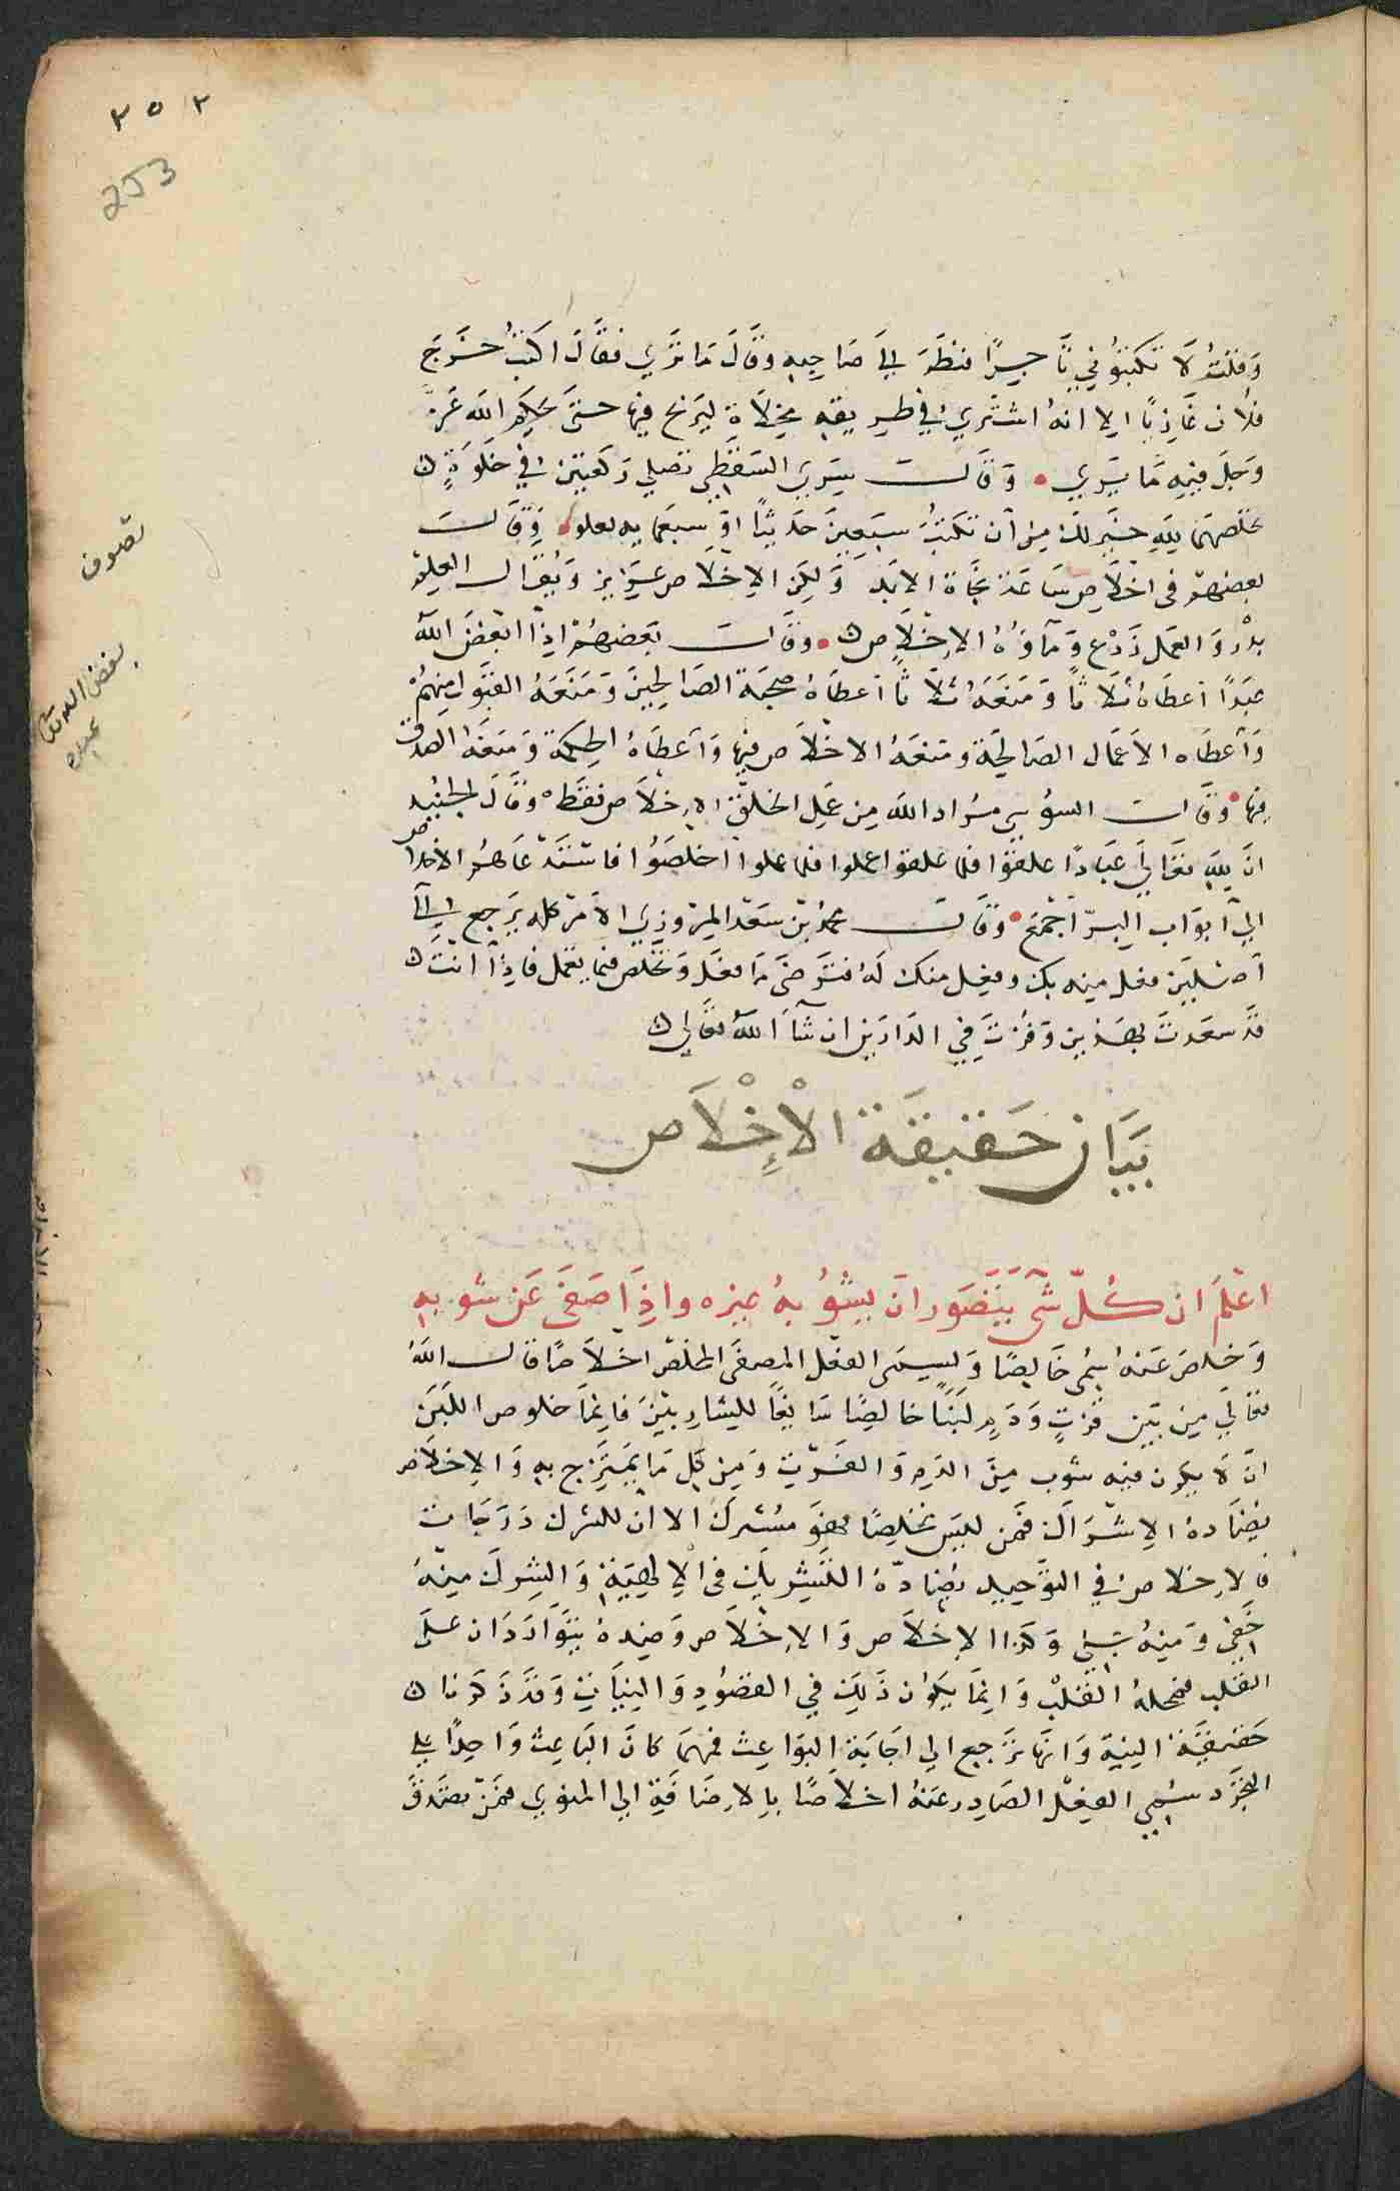 ٢٥٢
253
وَقلتُ لَا تكتبُوني تَاجِرًا فنظَرَ اِلَى صَاحِبِهِ وَقَالَ مَا تَرَي فقَالَ اكتبْ خَرَجَ
فلَان غَازِيًا الا انهُ اشتَري في طِريقهِ مِخلَاة ليَربح فيهَا حتى يحكم الله عَزَّ
وَجَلَ فيهِ مَا يَرَي • وَقَالَـــ سَرِيّ السَقَطي تصلي رَكعَتين في خلوَةٍ
تخلصهمَا لِلَّهِ خَيْر لك مِن اَن تكتبَ سبَعِينَ حَدِيثًا اَو سبعمايه بعلو • وَقَالَـــ
بعضهُم في اخلَاص سَاعَة نجَاة الابَد وَلكِن الاخلَاص عَزيز وَيُقَالُـ العلم
بذْر وَالعمَل زَرْع وَمآؤهُ الاِخلَاص • وقَالَـــ بَعضهُمْ اِذَا اَبْغضَ اللهُ
عَبَدًا اَعطَاهُ ثلَاثًا وَمَنعَهُ ثلَاثًا اَعطَاهُ صحبَة الصَالحِينَ وَمَنَعَهُ القبَوْل مِنهُمْ
وَاَعطَاه الاَعمَال الصَالِحَة وَمَنعَهُ الاخلَاص فيهَا وَاَعطَاهُ الحِكمَة وَمَنعَهُ الصدق
فيهَا • وقَالَـــ السوُسي مُرَاد الله مِن عَمِل الخلق الاِخلَاص فقَطْ وَقَالَ الجنيد
انَّ لِلَّهِ تعَالي عبَادًا عقلوا فلما عقلوا عملوا فلما عملوا اخلصُوا فاستَدْعَاهُم الاخلاص
الي اَبوَاب البِرّ اَجْمَع • وَقَالَـــ محمدُ بْن سَعَد المرْوَزِي الامْر كله يَرجع الي
اَصْلَين فعل مِنه بك وفعِل منك لَهُ فتَرضَى مَا فعَل وَتخلص فيما تعْمل فاذَا اَنتَ
قَد سعَدتَ بهَذين وَفزتَ في الدَارَين ان شآءَ اللهُ تعَالي
بَيَان حَقيقَة الْاِخْلَاص
اعْلَم ان كُلّ شئ يَتَصَوَر اَن يشُوُبهُ غيره وَاِذَا صَفَى عَن شَوبهِ
وَخلصَ عَنهُ سُمي خَالِصًا وَيسمَى الفعْل المصفَى المخلص اخلَاصًا قالـ اللهُ
تعَالي مِن بَيْن فَرْثٍ وَدَمٍ لَبَنًا خَالصًا سَايغًا للشارِبيْنَ فَاِنمَا خلوص اللبَن
ان لَا يكون فيه شَوب مِنَ الدَم وَالفَرثِ وَمِن كل مَا يَمتَزج بهِ وَالاِخلَاص
يُضَادهُ الاِشرَاك فَمن ليْسَ مخلصًا فهوَ مُشرك الا ان للشرك دَرَجَات
فالاِخلاص في التَوْحِيد يُضَادّهُ التَشرِيك في الاِلهِيَة وَالشِرك مِنهُ
خَفِي وَمِنهُ جَلِي وَكذا الاِخلَاص وَالاِخلَاص وَضِدهُ يَتَوَارَدَان عَلى
القَلب فمحلهُ القَلْب وَانمَا يَكوُن ذَلِك في القصُودِ وَالنِيَات وَقَد ذَكرنا
حَقيقَة النِيَة وَانَّهَا تَرجع الي اجَابَة البَوَاعِث فَمهمَا كانَ البَاعِث وَاحِدًا علي
التجَرُّد سُمي الفِعْل الصَادِر عَنهُ اخلَاصًا بالاِضَافَة الي المنوِي فَمنْ تصَدقَ
تصوف
بغض الله تعالى
عبده